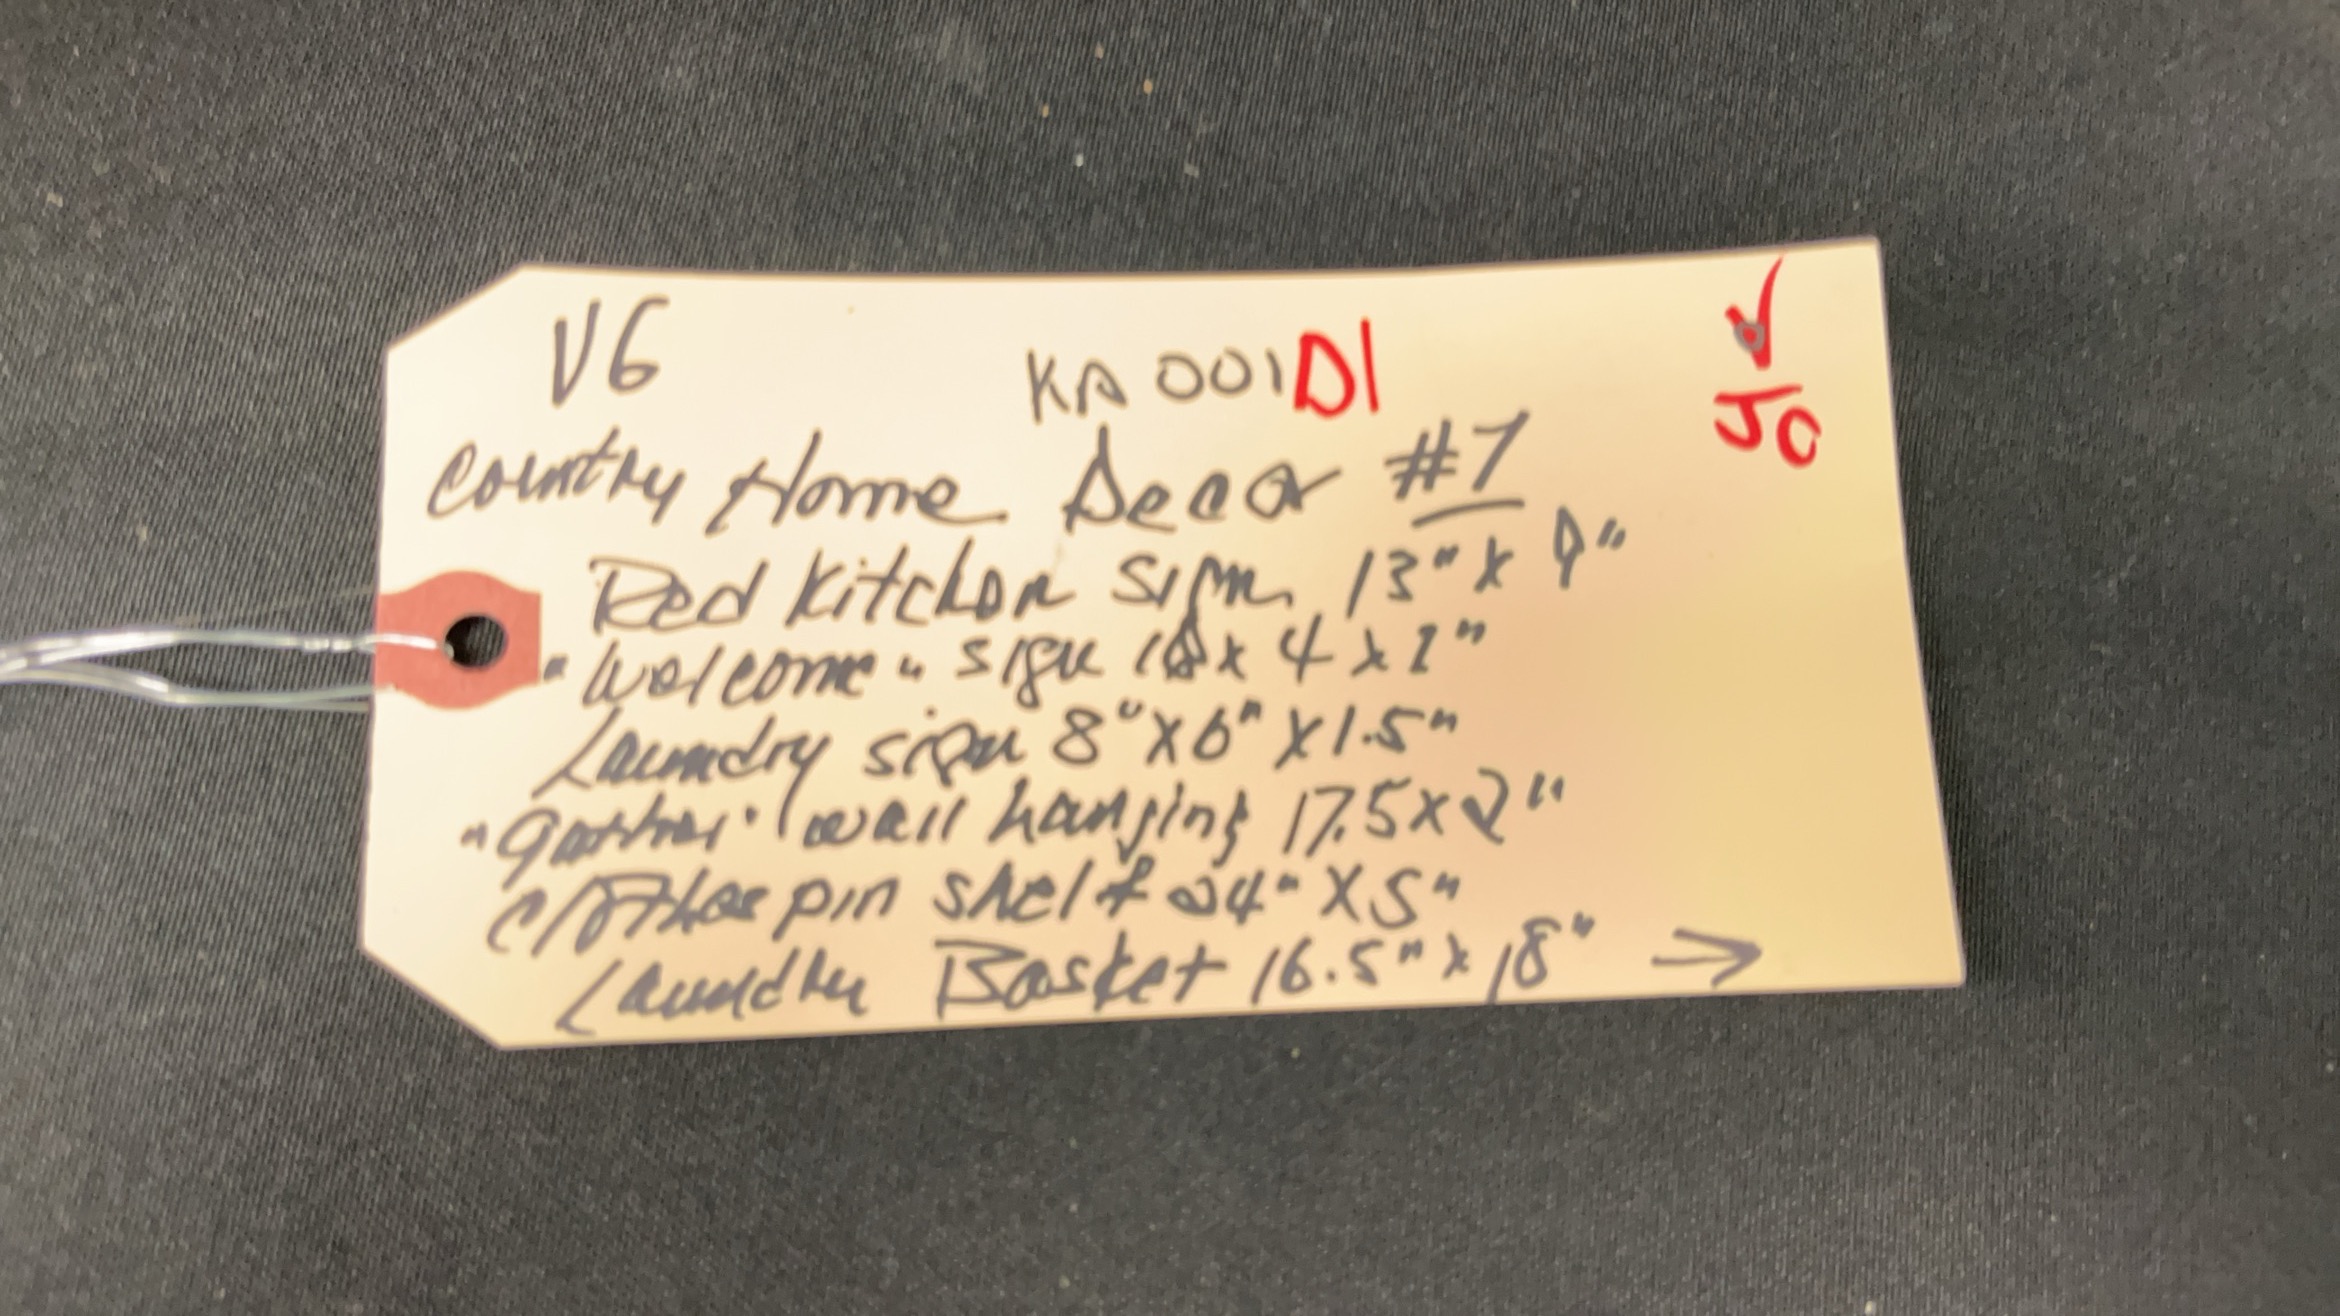 V6
KA 001D1
JO
Country Home Decor #7
Red Kitchen Sign 13" x 9"
"Welcome" sign x 4 x 1"
Laundry sign 8" x 6" x 1.5"
"Gather" wall hanging 17.5 x 2"
Clothes pin shelf 24" x 5"
Laundry Basket 16.5" x 18" →